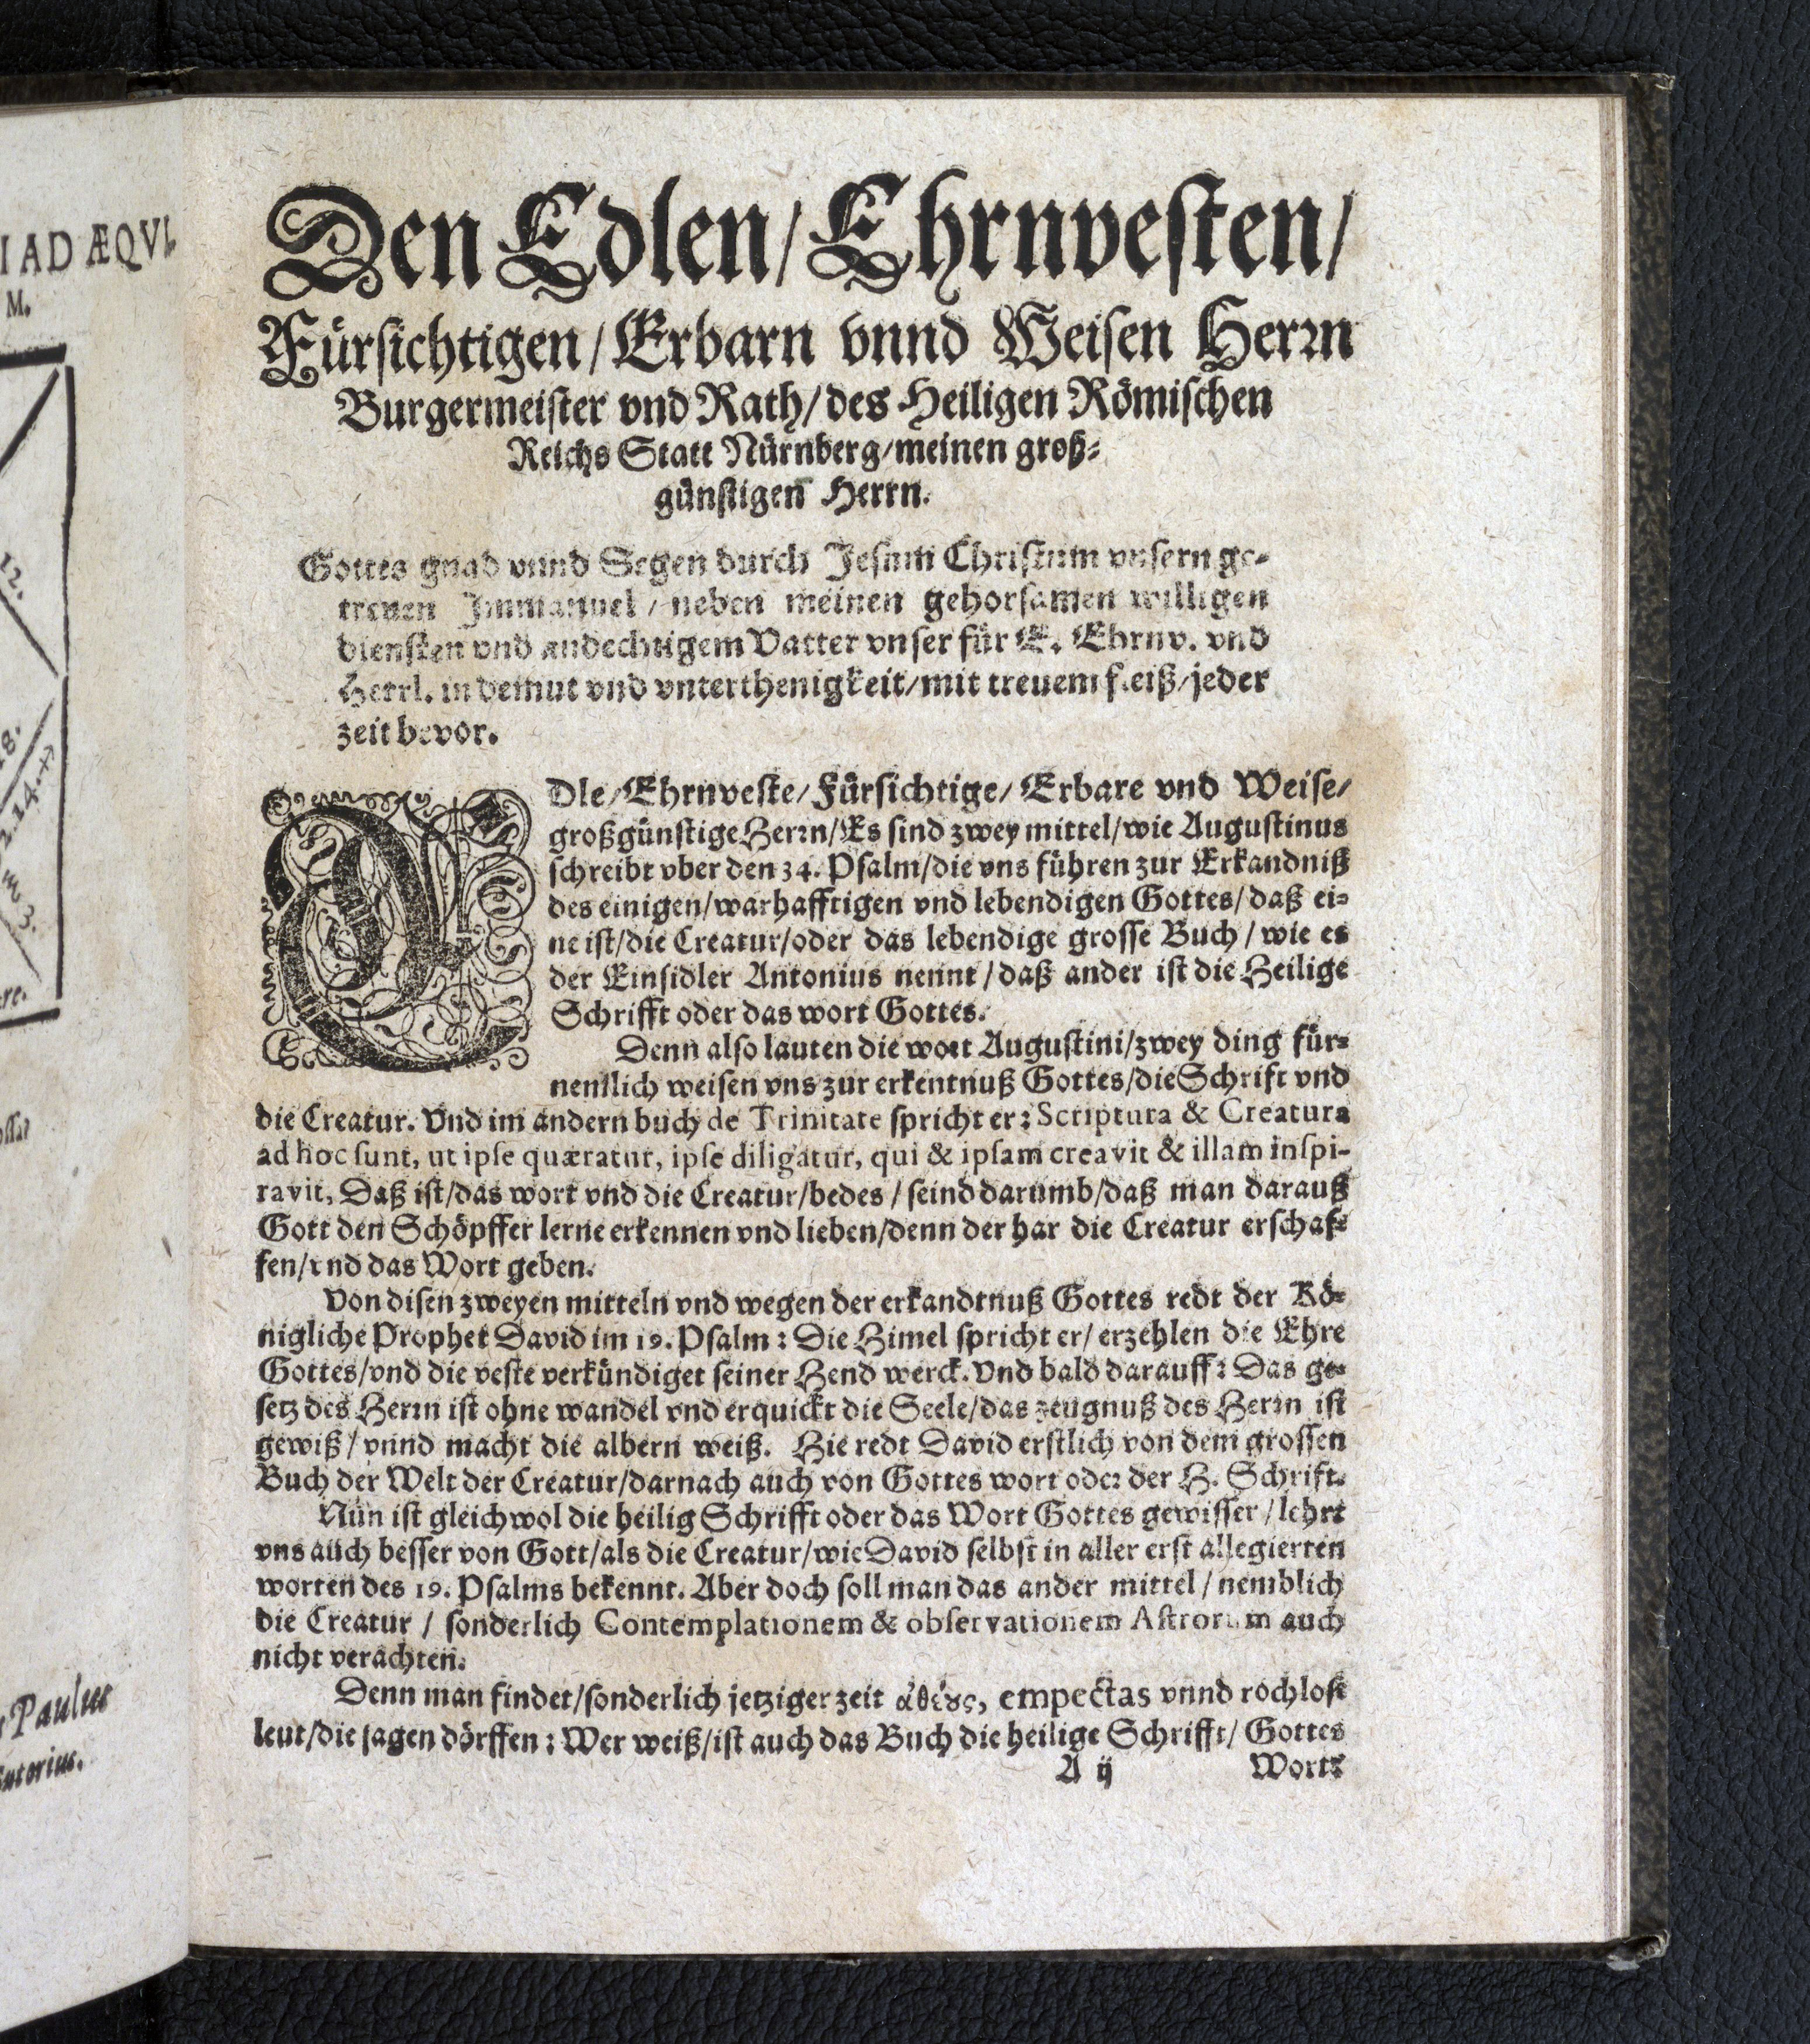 I AD ÆQVI.
M.
12.
18.
2.14.
3.
re.
Paulus
Sutorius.
Den Edlen/ Ehrnvesten/
Fürsichtigen/ Erbarn vnnd Weisen Herrn
Burgermeister vnd Rath/ des Heiligen Römischen
Reichs Statt Nürnberg/ meinen groß-
günstigen Herrn.
Gottes gnad vnnd Segen durch Jesum Christum vnsern ge-
treuen Immanuel/ neben meinen gehorsamen willigen
diensten vnd andechtigem Vatter vnser für E. Ehrnv. vnd
Herrl. in demut vnd vnterthenigkeit/ mit treuem fleiß/ jeder
zeit bevor.
EDle/ Ehrnveste/ Fürsichtige/ Erbare vnd Weise/
großgünstige Herrn/ Es sind zwey mittel/ wie Augustinus
schreibt vber den 34. Psalm/ die vns führen zur Erkandniß
des einigen/ warhafftigen vnd lebendigen Gottes/ daß ei-
ne ist/ die Creatur/ oder das lebendige grosse Buch/ wie es
der Einsidler Antonius nennt/ daß ander ist die Heilige
Schrifft oder das wort Gottes.
Denn also lauten die wort Augustini/ zwey ding für-
nemlich weisen vns zur erkentnuß Gottes/ die Schrift vnd
die Creatur. Vnd im andern buch de Trinitate spricht er: Scriptura & Creatura
ad hoc sunt, ut ipse quæratur, ipse diligatur, qui & ipsam creavit & illam inspi-
ravit, Daß ist/ das wort vnd die Creatur/ bedes/ seind darumb/ daß man darauß
Gott den Schöpffer lerne erkennen vnd lieben/ denn der hat die Creatur erschaf-
fen/ vnd das Wort geben.
Von disen zweyen mitteln vnd wegen der erkandtnuß Gottes redt der Kö-
nigliche Prophet David im 19. Psalm: Die Himel spricht er/ erzehlen die Ehre
Gottes/ vnd die veste verkündiget seiner Hend werck. Vnd bald darauff: Das ge-
setz des Herrn ist ohne wandel vnd erquickt die Seele/ das zeugnuß des Herrn ist
gewiß/ vnnd macht die albern weiß. Hie redt David erstlich von dem grossen
Buch der Welt der Creatur/ darnach auch von Gottes wort oder der H. Schrift.
Nun ist gleichwol die heilig Schrifft oder das Wort Gottes gewisser/ lehrt
vns auch besser von Gott/ als die Creatur/ wie David selbst in aller erst allegierten
worten des 19. Psalms bekennt. Aber doch soll man das ander mittel/ nemblich
die Creatur/ sonderlich Contemplationem & observationem Astrorum auch
nicht verachten.
Denn man findet/ sonderlich jetziger zeit ἀθέȣς, empectas vnnd rochlose
leut/ die sagen dörffen: Wer weiß/ ist auch das Buch die heilige Schrifft/ Gottes
A ij Wort?